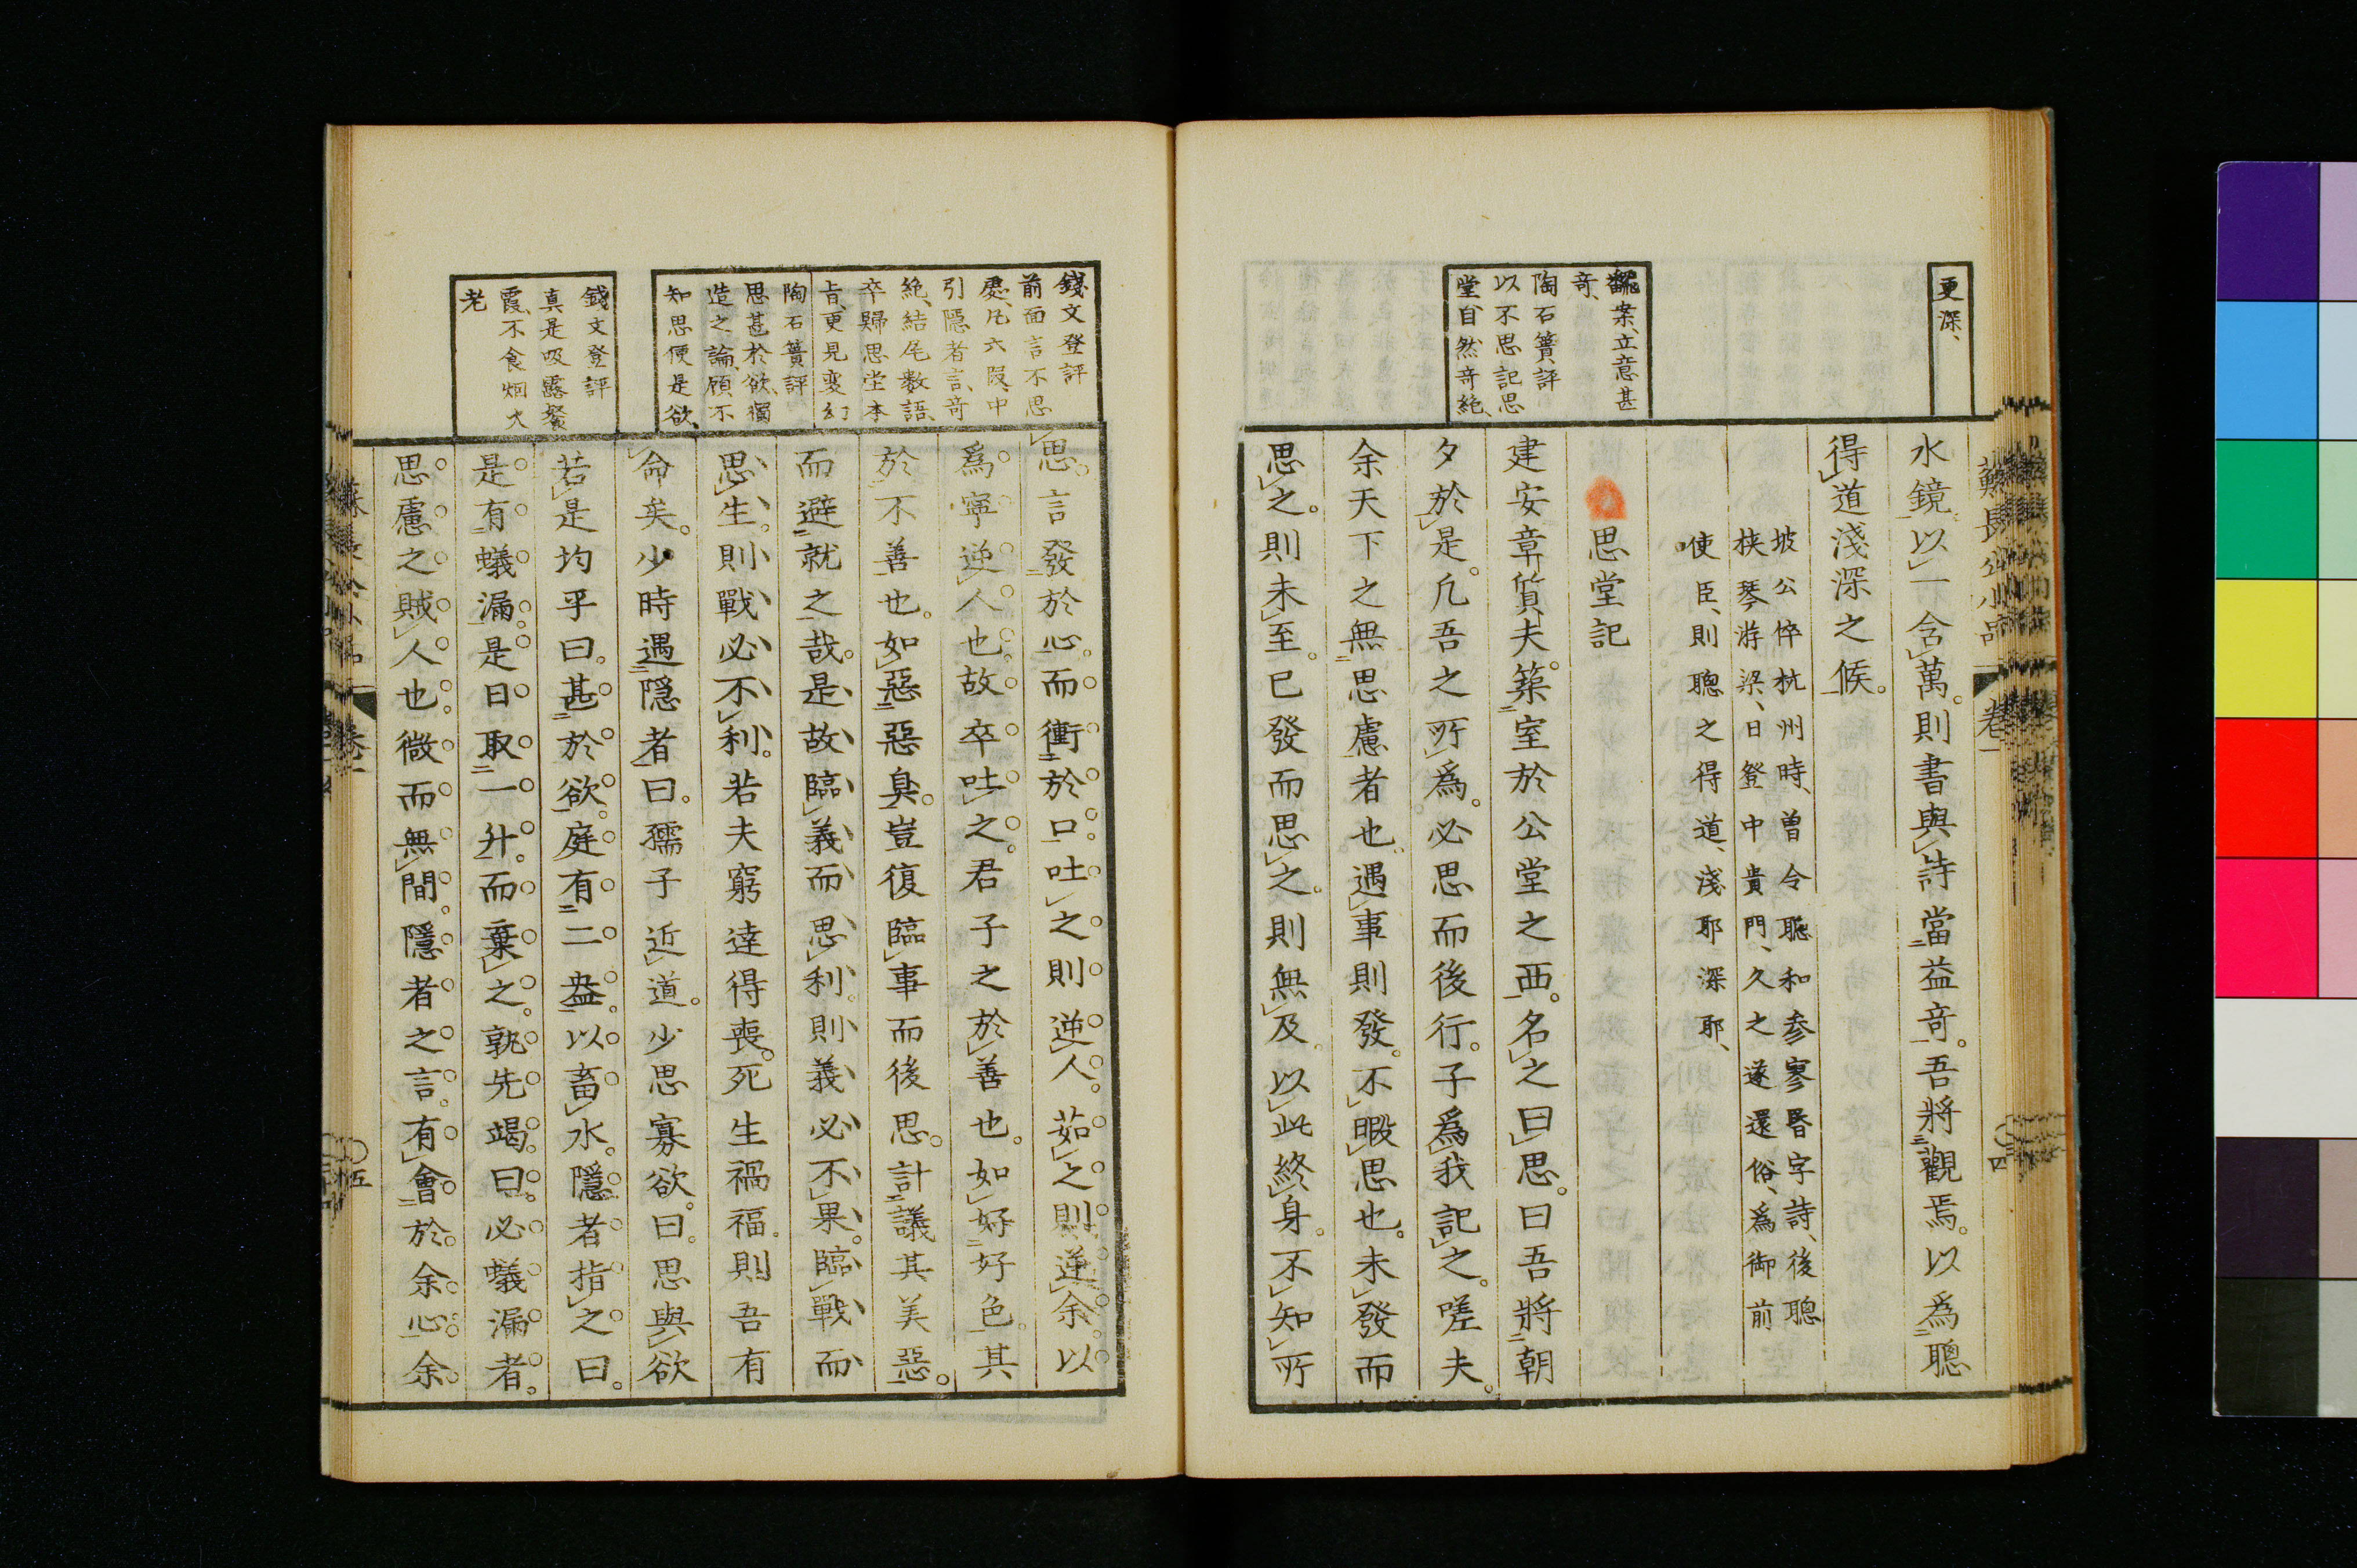 更深、
水鏡以一含萬。則書與詩當益奇。吾將觀焉。以爲聰
得道淺深之候。
坡公倅杭州時、曽令聰和參寥昏字詩、後聰
挾琴游梁、日登中貴門、久之遂還俗、爲御前
使臣、則聰之得道、淺耶深耶、
翻案、立意甚
奇、
陶石簣評
以不思記思
堂、自然奇絶、
思堂記
建安章質夫。築室於公堂之西。名之曰思。曰吾將朝
夕於是。凡吾之所爲。必思而後行。子爲我記之。嗟夫。
余天下之無思慮者也。遇事則發。不暇思也。未發而
思之。則未至。已發而思之。則無及。以此終身。不知所
蘇長公小品
卷一
四
錢文登評
前面言不思
處、凡六段、中
引隱者言、奇
絶、結尾數語、
卒歸思堂本
旨、更見變幻
陶石簣評
思甚於欲、獨
造之論、顧不
知思便是欲、
錢文登評
真是吸露餐
霞、不食烟火
老
思。言發於心。而衝於口。吐之則逆人。茹之則逆余。以
爲寧逆人也。故卒吐之。君子之於善也。如好好色。其
於不善也。如惡惡臭。豈復臨事而後思。計議其美惡。
而避就之哉。是故臨義而思利。則義必不果。臨戰而
思生。則戰必不利。若夫窮達得喪。死生禍福。則吾有
命矣。少時遇隱者。曰。孺子近道。少思寡欲。曰。思與欲
若是均乎。曰。甚於欲。庭有二盎。以畜水。隱者指之。曰。
是有蟻漏。是日取一升。而棄之。孰先竭。曰。必蟻漏者。
思慮之賊人也。微而無間。隱者之言。有會於余心。余
五